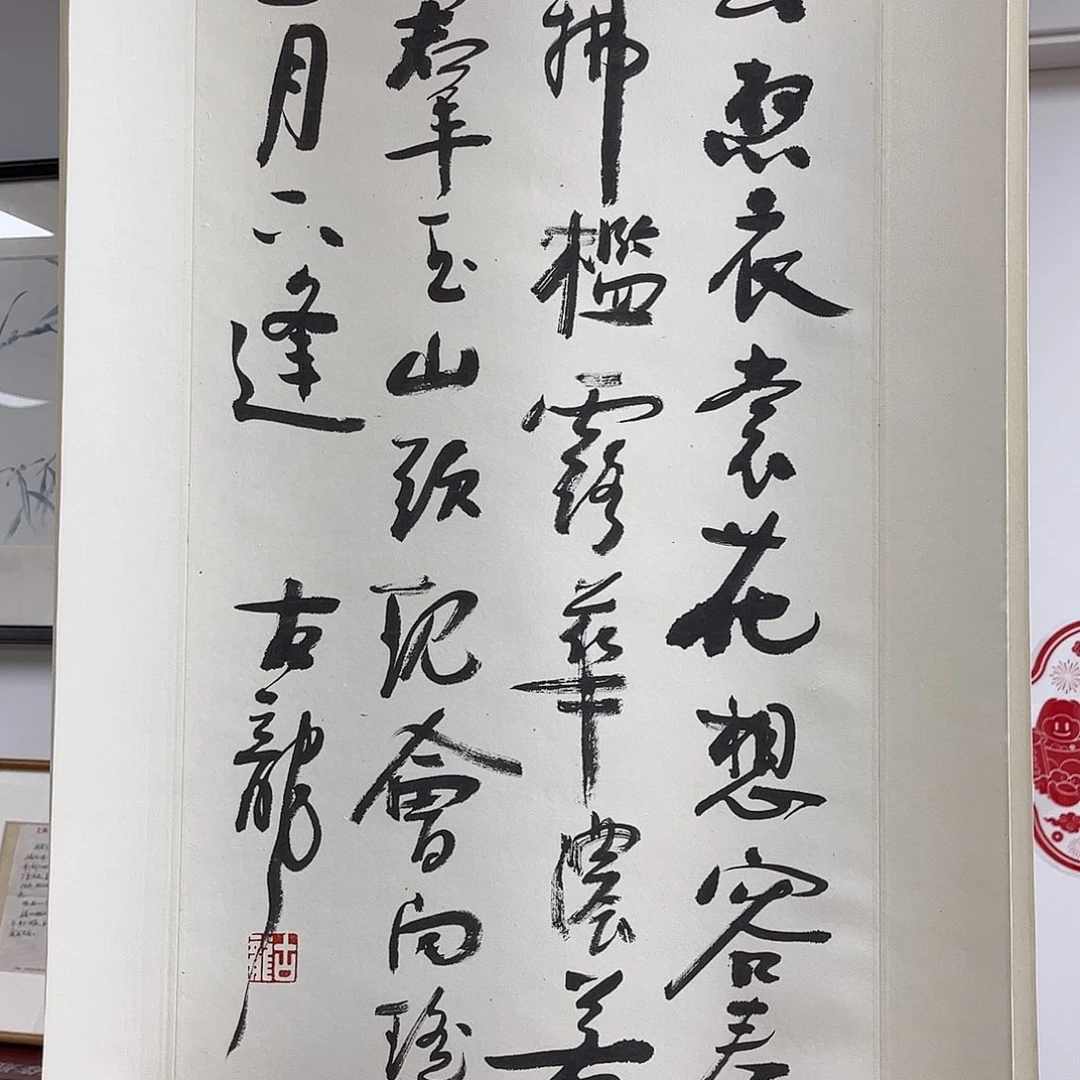 想衣裳花想容春
拂檻露華濃若
羣玉山頭現會向瑤
月下逢
古龍
古龍